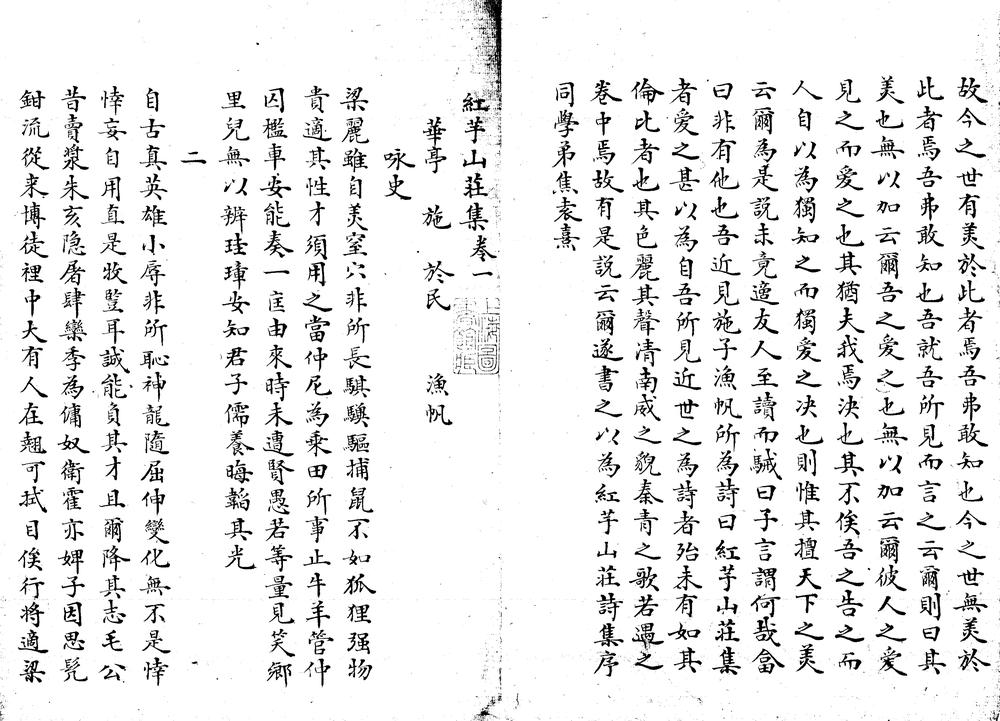 故今之世有美於此者焉吾弗敢知也今之世無美於
此者焉吾弗敢知也吾就吾所見而言之云爾則曰其
美也無以加云爾吾之愛之也無以加云爾彼人之愛
見之而愛之也其猶夫我焉決也其不俟吾之告之而
人自以為獨知之而獨愛之决也則惟其擅天下之美
云爾為是說未竟適友人至讀而駴曰子言謂何哉畣
曰非有他也吾近見施子漁帆所為詩曰紅芋山莊集
者愛之甚以為自吾所見近世之為詩者殆未有如其
倫比者也其色麗其聲凊南威之貌秦青之歌若遇之
卷中焉故有是說云爾遂書之以為紅芋山莊詩集序
同學弟焦袁熹
紅芋山莊集卷一
華亭 施 於民 漁帆
咏史
梁麗雖自美窒穴非所長騏驥驅捕鼠不如狐狸强物
貴適其性才須用之當仲尼為乘田所事止牛羊管仲
囚檻車安能奏一匡由來時未遭賢愚若等量見笑鄉
里兒無以辨珪璋安知君子儒養晦韜其光
二
自古真英雄小辱非所恥神龍隨屈伸變化無不是悻
悻妄自用直是牧豎耳誠能負其才且爾降其志毛公
昔賣漿朱亥隐屠肆欒季為傭奴衛霍亦婢子因思髡
鉗流從来博徒裡中大有人在翹可拭目俟行將適梁